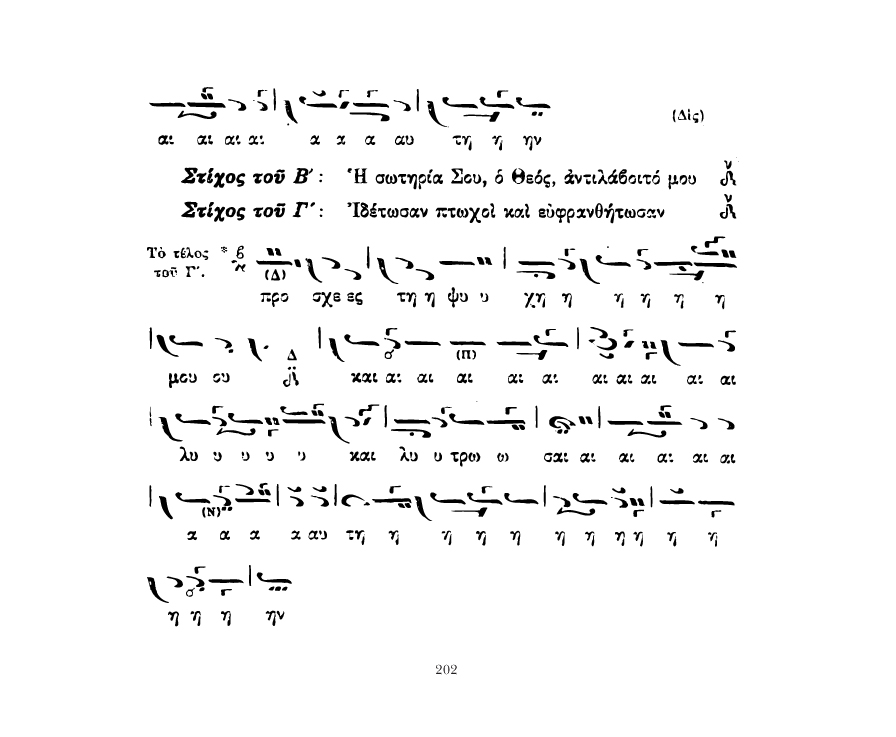 αι αι αι αι α α α αυ τη η ην (Δὶς)
Στίχος τοῦ Β΄: Ἡ σωτηρία Σου, ὁ Θεός, ἀντιλάβοιτό μου
Στίχος τοῦ Γ΄: Ἰδέτωσαν πτωχοὶ καὶ εὐφρανθήτωσαν
Τὸ τέλος * β
τοῦ Γ΄. (Δ)
προ σχε ες τη η ψυ υ χη η η η η η
Δ (Π)
μου ου και αι αι αι αι αι αι αι αι αι αι
λυ υ υ υ υ και λυ υ τρω ω σαι αι αι αι αι αι
(Ν)
α α α α αυ τη η η η η η η η η η η
η η η ην
202